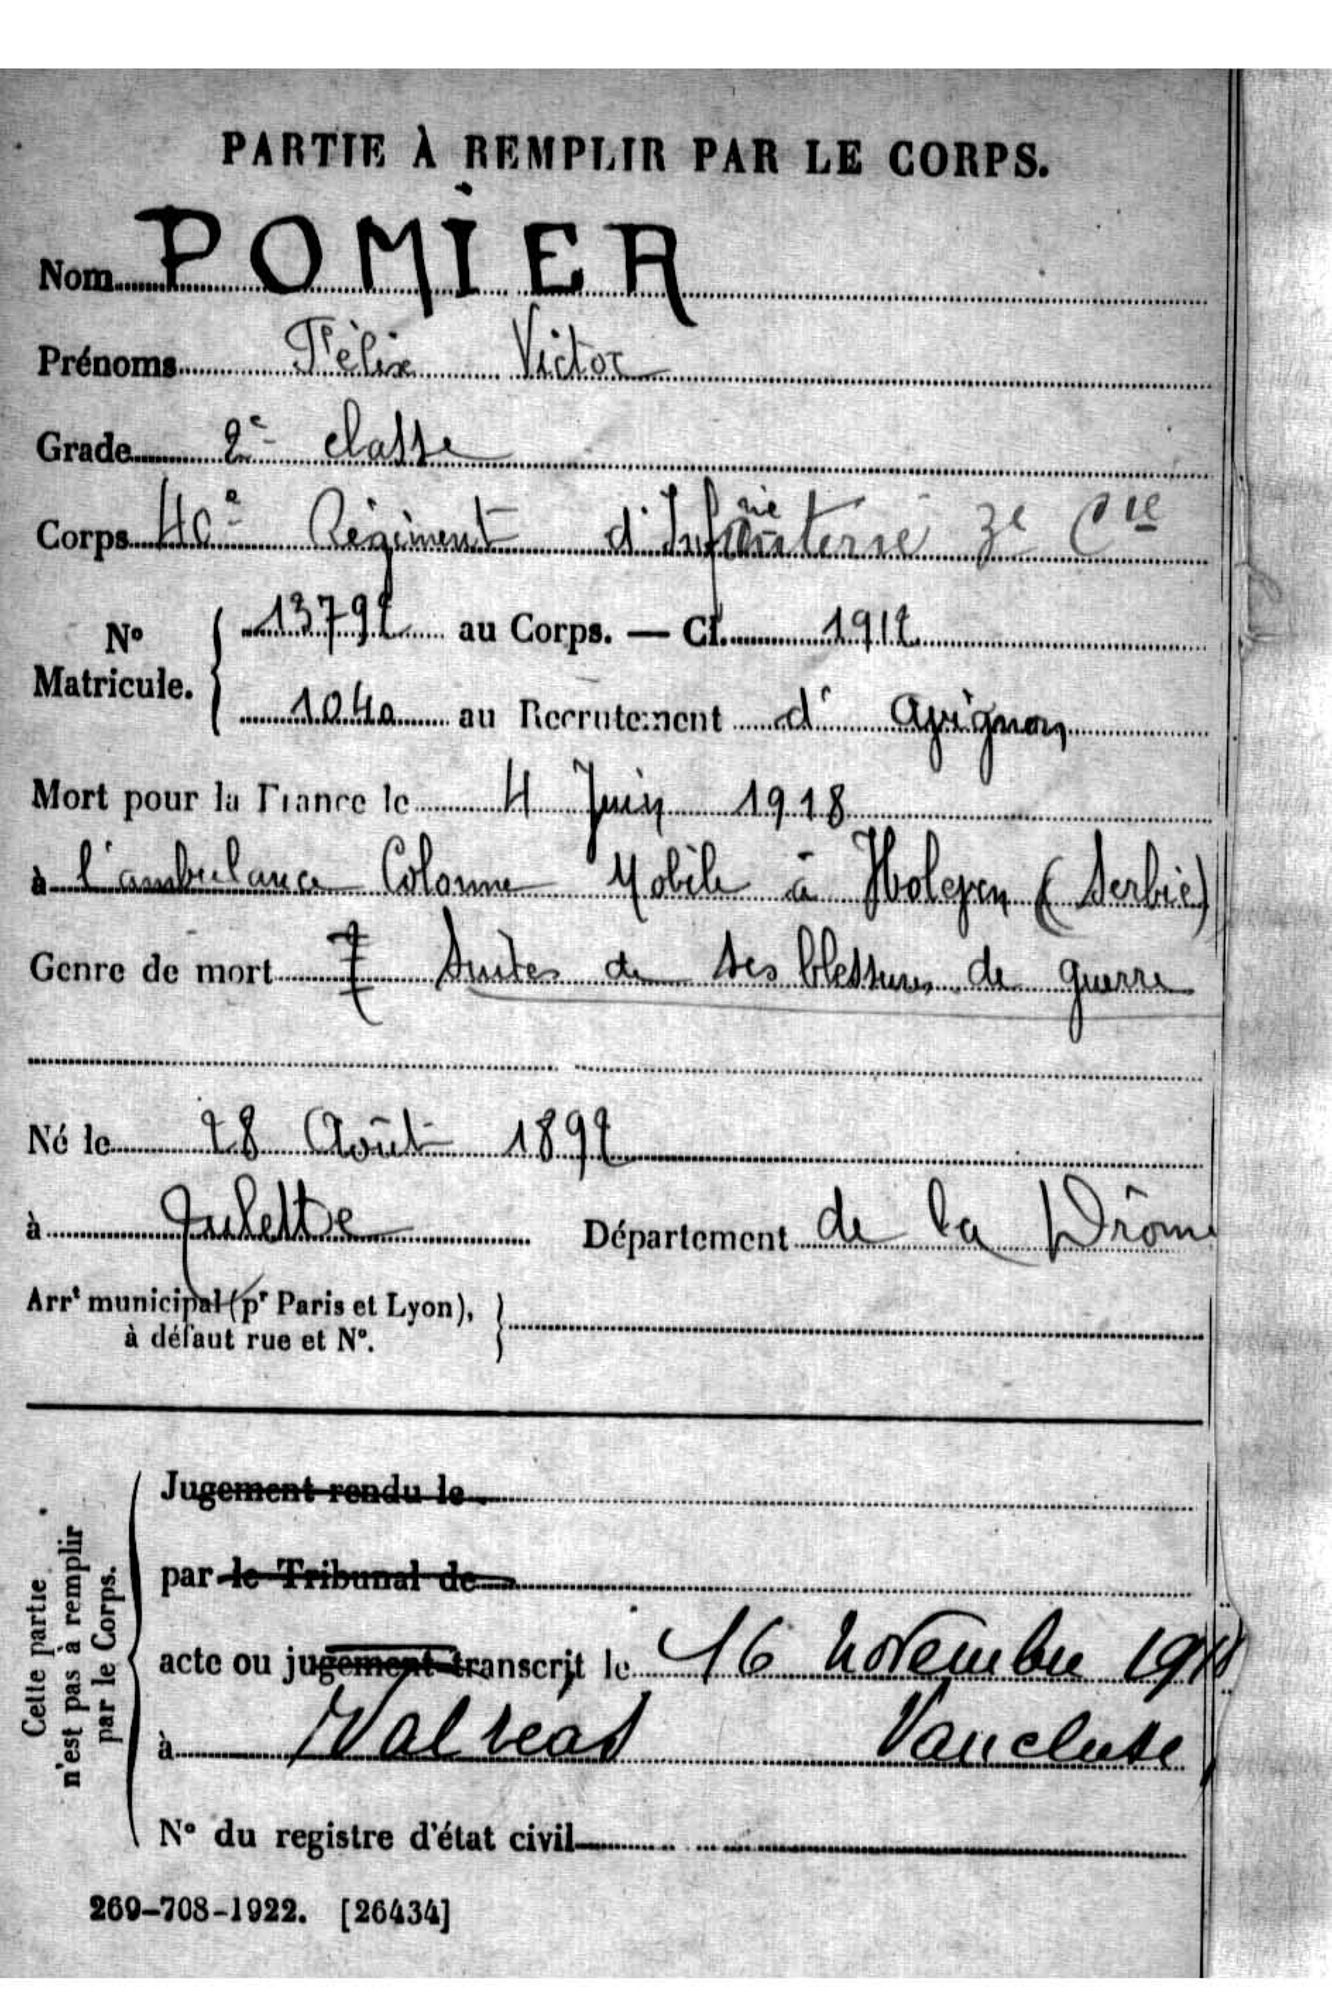 PARTIE À REMPLIR PAR LE CORPS.
Nom POMIER
Prénoms Félix Victor
Grade 2e classe
Corps 40e Régiment d'Infanterie 3e Cie
No Matricule. 13792 au Corps. — Cl. 1912
1040 au Recrutement d' Avignon
Mort pour la France le 4 Juin 1918
à l'ambulance Colonne Mobile à Holeven (Serbie)
Genre de mort Suites de ses blessures de guerre
Né le 28 Août 1892
à Taulette Département de la Drôme
Arrt municipal (pr Paris et Lyon),
à défaut rue et No.
Cette partie
n'est pas à remplir
par le Corps.
Jugement rendu le
par le Tribunal de
acte ou jugement transcrit le 16 novembre 1918
à Valréas Vaucluse
No du registre d'état civil
269-708-1922. [26434]